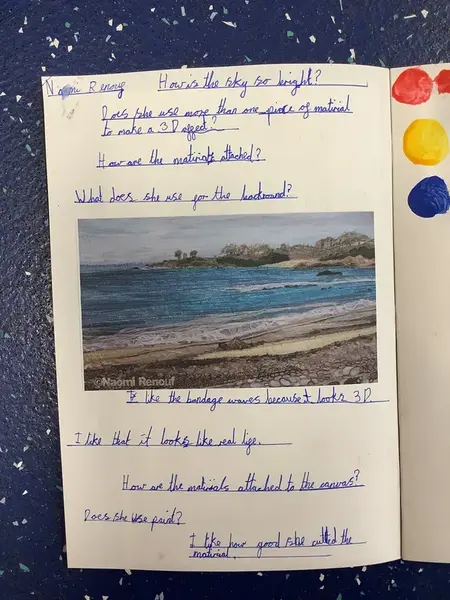 Naomi Renouf
How is the sky so bright?
Does she use more than one piece of matirial
to make a 3D effect?
How are the matirials attached?
What does she use for the backround?
©Naomi Renouf
I like the bandage waves because it looks 3D.
I like that it looks like real life.
How are the matirials attached to the canvas?
Does she use paint?
I like how good she cutted the
matirial.